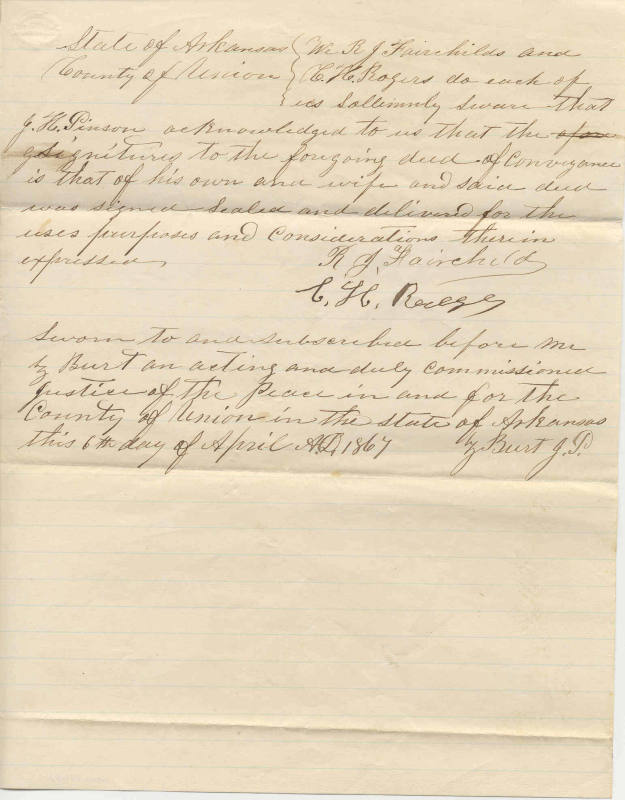 State of Arkansas { We R J Fairchilds and
County of Union { C. H. Rogers do each of
us Sollemnly Sware that
J. H. Pinson acknowledged to us that the
Signitures to the foregoing deed of Conveyance
is that of his own and wife and said deed
was signed Sealed and delivered for the
uses purposes and Considerations therein
expressed,
R J, Fairchild
C. H.
Sworn to and subscribed before me
Z Burt an acting and duly commissioned
Justice of the Peace in and for the
County of Union in the state of Arkansas
this 6th day of April A.D, 1867 Z Burt J. P.